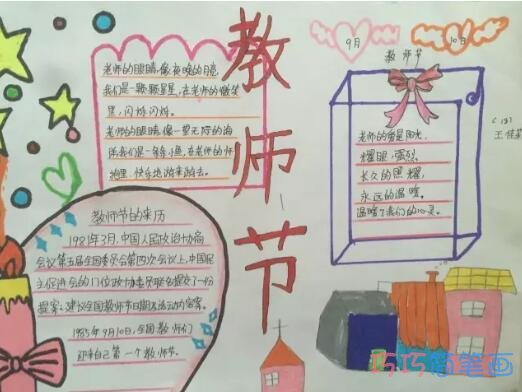 教师节
老师的眼睛,像夜晚的月亮,
我们是一颗颗星星,在老师的微笑
里,闪烁闪烁。
老师的眼睛,像一望无际的海
洋我们是一条条小鱼,在老师的怀
抱里,快乐地游来游去。
9月
10日
教师节
老师的爱是阳光,
耀眼,强烈。
长久的照耀,
永远的温暖。
温暖了我们的心灵。
教师节的来历
1981年3月,中国人民政治协商
会议第五届全国委员会第四次会议上,中国民
主促进会的门位政协委员联名提交了一份
提案:建议全国教师节日期及活动的方案。
1985年9月10日,全国教师们
迎来自己第一个教师节。
巧巧简笔画